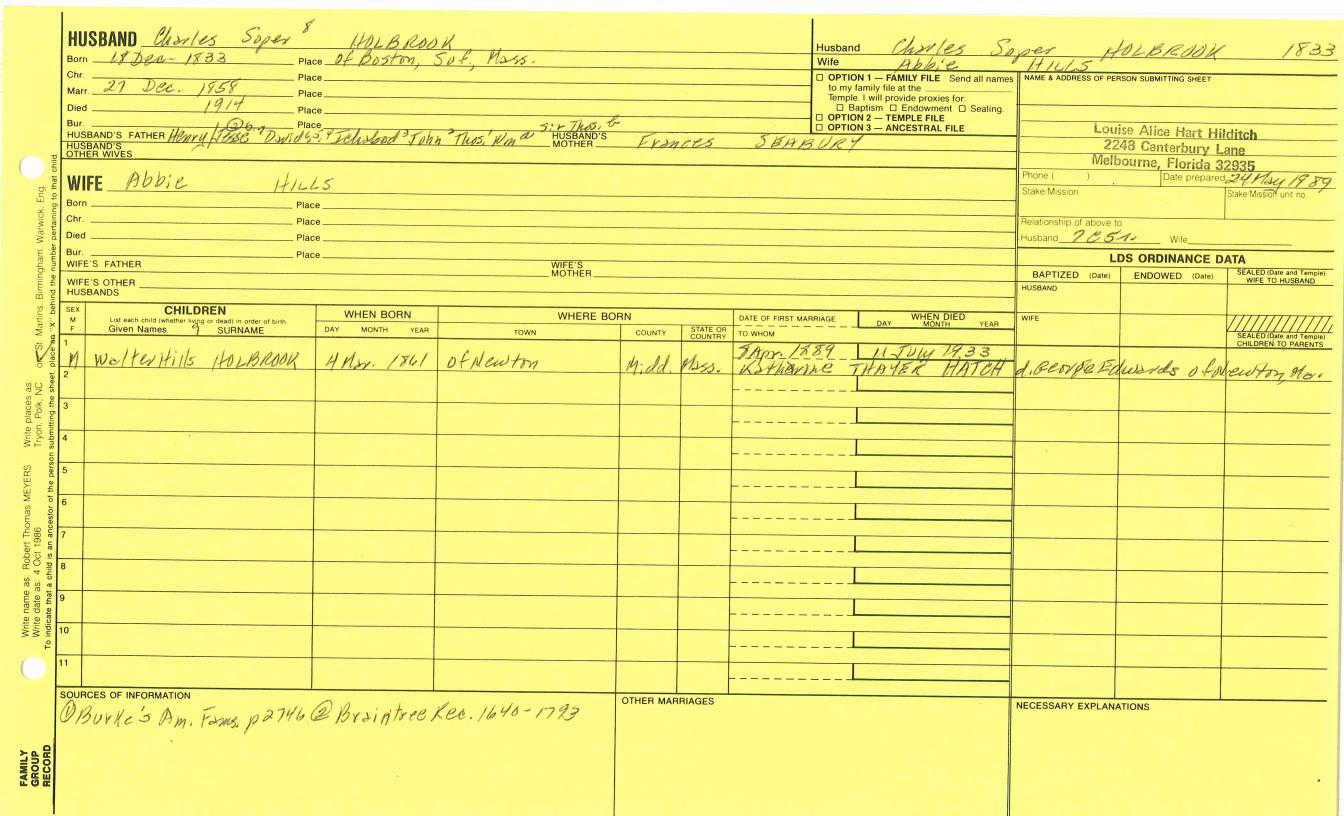 HUSBAND Charles Soper 8 HOLBROOK
Born 18 Dec- 1833 Place of Boston, Suf, Mass.
Chr. Place
Marr. 27 Dec. 1958 Place
Died 1914 Place
Bur. Place
HUSBAND'S FATHER Henry Jesse David Ichabod John Thos. Wm Sir Thos. HUSBAND'S MOTHER Frances SEABURY
HUSBAND'S OTHER WIVES
Husband Charles Soper HOLBROOK 1833
Wife Abbie HILLS
☐ OPTION 1 — FAMILY FILE Send all names
to my family file at the
Temple. I will provide proxies for:
☐ Baptism ☐ Endowment ☐ Sealing.
☐ OPTION 2 — TEMPLE FILE
☐ OPTION 3 — ANCESTRAL FILE
NAME & ADDRESS OF PERSON SUBMITTING SHEET
Louise Alice Hart Hilditch
2248 Canterbury Lane
Melbourne, Florida 32935
Phone ( ) Date prepared 24 May 1989
Stake Mission Stake Mission unit no.
Relationship of above to
Husband 7C5r. Wife
WIFE Abbie HILLS
Born Place
Chr. Place
Died Place
Bur. Place
WIFE'S FATHER WIFE'S MOTHER
WIFE'S OTHER HUSBANDS
LDS ORDINANCE DATA
BAPTIZED (Date) ENDOWED (Date) SEALED (Date and Temple) WIFE TO HUSBAND
HUSBAND
WIFE
SEALED (Date and Temple) CHILDREN TO PARENTS
SEX M F
CHILDREN
List each child (whether living or dead) in order of birth
Given Names 9 SURNAME
WHEN BORN
DAY MONTH YEAR
WHERE BORN
TOWN COUNTY STATE OR COUNTRY
DATE OF FIRST MARRIAGE
TO WHOM
WHEN DIED
DAY MONTH YEAR
1 8 Apr. 1889 11 July 1933
M Walter Hills HOLBROOK 4 Mar. 1861 of Newton Midd. Mass. Katharine THAYER HATCH d. George Edwards of Newton, Ma.
2
3
4
5
6
7
8
9
10
11
SOURCES OF INFORMATION
① Burke's Am. Fams. p2746 ② Braintree Rec. 1640-1793
OTHER MARRIAGES
NECESSARY EXPLANATIONS
FAMILY GROUP RECORD
Write name as: Robert Thomas MEYERS
Write date as: 4 Oct 1986
Write places as: Tryon, Polk, NC
or St Martins, Birmingham, Warwick, Eng.
To indicate that a child is an ancestor of the person submitting the sheet, place an "X" behind the number pertaining to that child